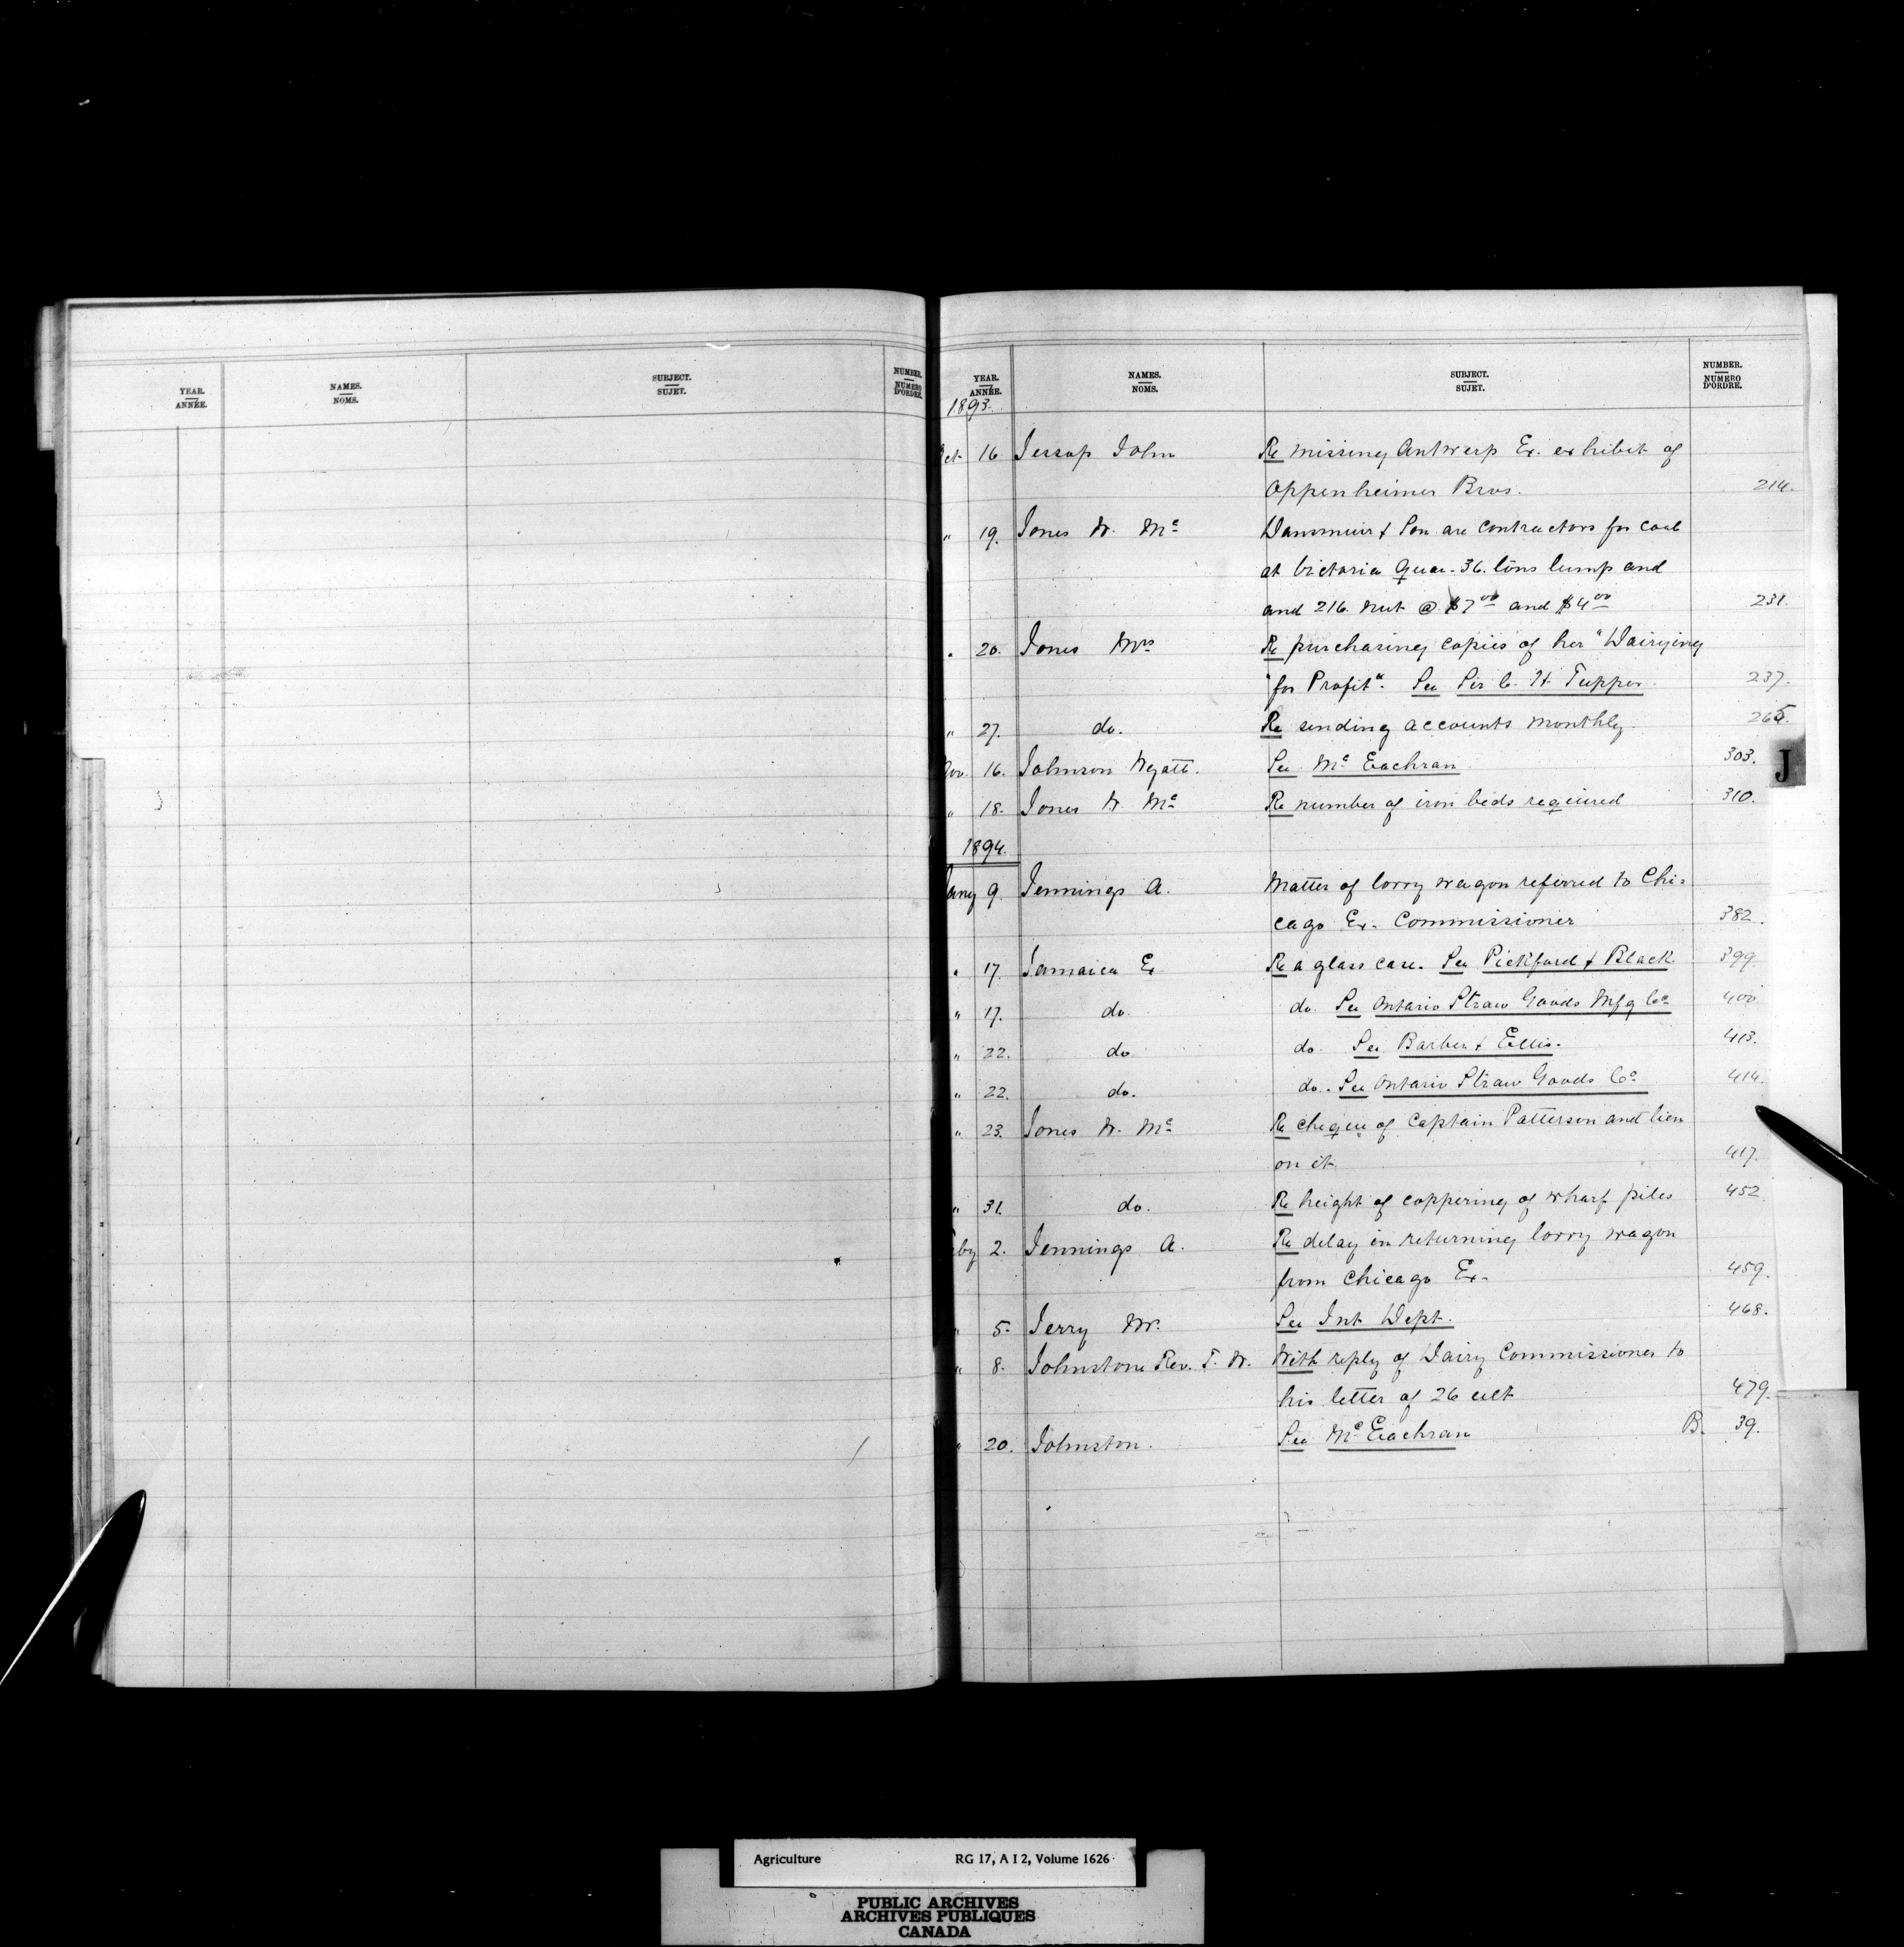 YEAR.
ANNÉE.
NAMES.
NOMS.
SUBJECT.
SUJET.
NUMBER.
NUMERO
D'ORDRE.
YEAR.
ANNÉE.
NAMES.
NOMS.
SUBJECT.
SUJET.
NUMBER.
NUMERO
D'ORDRE.
1893.
Oct 16 Jessop John Re missing Antwerp Ex. exhibit of
Oppenheimer Bros. 214.
" 19. Jones W. Mc Dunsmuir & Son are contractors for coal
at Victoria Quar. 36. tons lump and
and 216. nut @ $7 00 and $4 00 231.
" 20. Jones Mrs Re purchasing copies of her "Dairying
"for Profit". See Sir C. H. Tupper. 237.
" 27. do. Re sending accounts monthly. 265.
Nov. 16. Johnson Wyatt. See Mc Eachran 303.
" 18. Jones W. Mc Re number of iron beds required 310.
1894.
Jany 9. Jennings A. Matter of lorry wagon referred to Chi-
cago Ex. Commissioner 382.
" 17. Jamaica Ex Re a glass case. See Pickford & Black. 399
" 17. do. do. See Ontario Straw Goods Mfg Co 400
" 22. do do. See Barber & Ellis. 413.
" 22. do. do. See Ontario Straw Goods Co. 414.
" 23. Jones W. Mc Re cheque of Captain Patterson and lien
on it. 417.
" 31. do. Re height of coppering of wharf piles 452
Feby 2. Jennings A. Re delay in returning lorry wagon
from Chicago Ex. 459.
" 5. Jerry W. See Int Dept. 468.
" 8. Johnstone Rev. T. W. With reply of Dairy Commissioner to
his letter of 26 ult 479.
" 20. Johnston. See Mc Eachran B. 39.
J
Agriculture RG 17, A I 2, Volume 1626
PUBLIC ARCHIVES
ARCHIVES PUBLIQUES
CANADA